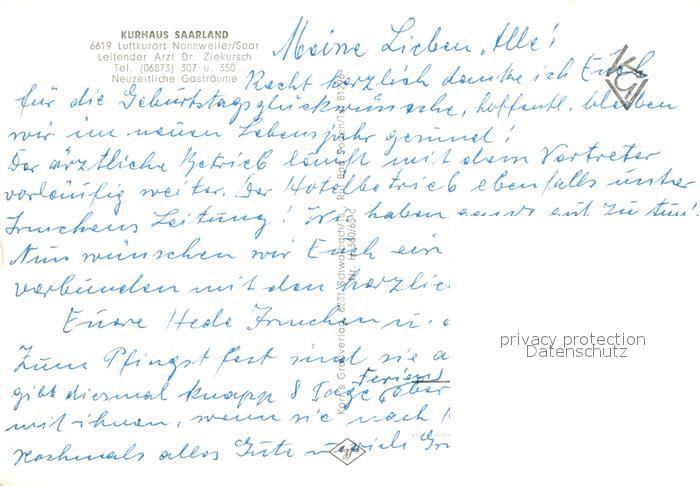 KURHAUS SAARLAND
6619 Luftkurort Nonnweiler/Saar
Leitender Arzt Dr. Ziekursch
Tel. (06873) 307 u. 350
Neuzeitliche Gasträume
Meine Lieben Alle!
Recht herzlich danke ich Euch
für die Geburtstagsglückwünsche, hoffentl. bleiben
wir im neuen Lebensjahr gesund!
Der ärztliche Betrieb läuft mit dem Vertreter
vorläufig weiter. Der Hotelbetrieb ebenfalls unter
Irmchens Leitung! Wir haben zu tun!
Nun wünschen wir Euch ein
verbunden mit den herzlic
Euere Hede Irmchen u.
Zum Pfingstfest sind sie a
gibt diesmal knapp 8 Tage Ferien
mit ihnen, wenn sie nach
nochmals alles Gute u. viele Gr
privacy protection
Datenschutz